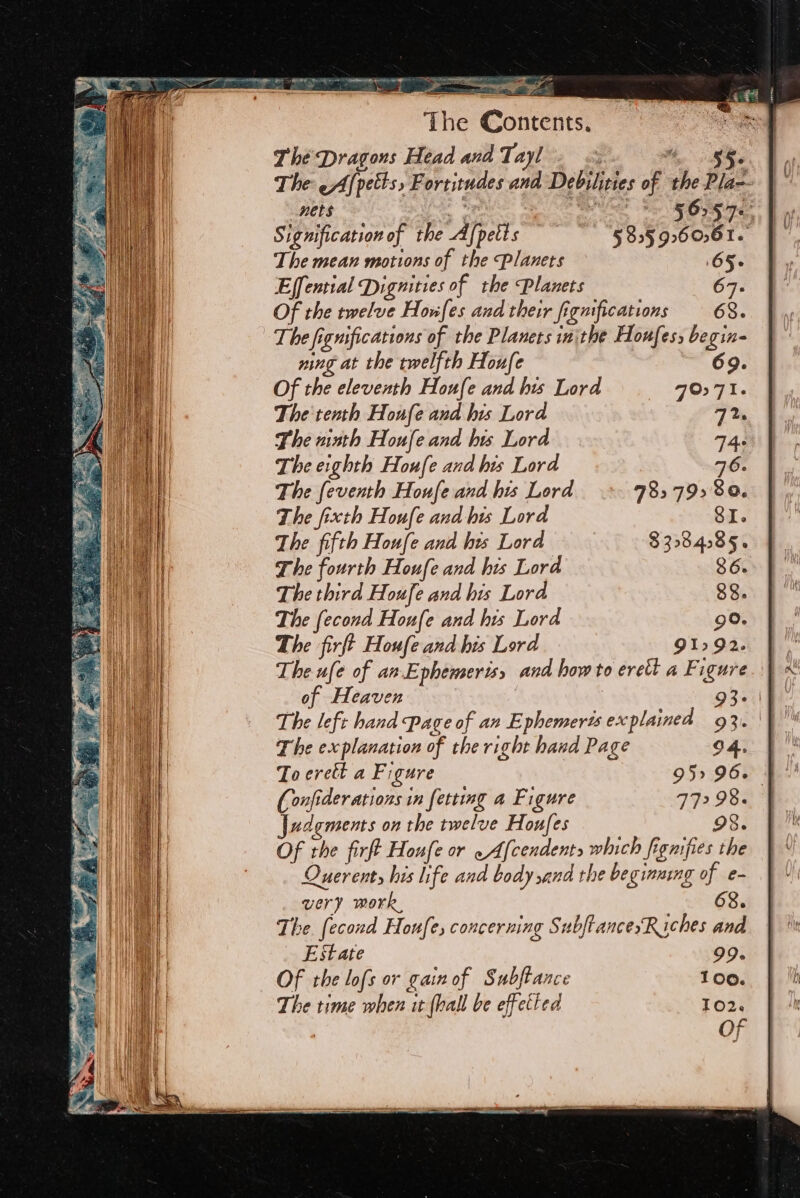 The Contents.
The Dragons Head and Tayl 55.
The Aſpects, Fortitudes and Debilities of the Pla-
nets 56,57.
Signification of the Aſpects 58,59,60,61.
The mean motions of the Planets 65.
Eſſential Dignities of the Planets 67.
Of the twelve Houſes and their ſignifications 68.
The ſignifications of the Planets in the Houſes, begin-
ning at the twelfth Houſe 69.
Of the eleventh Houſe and his Lord 70,71.
The tenth Houſe and his Lord 72.
The ninth Houſe and his Lord 74.
The eighth Houſe and his Lord 76.
The ſeventh Houſe and his Lord 78,79,80.
The ſixth Houſe and his Lord 81.
The fifth Houſe and his Lord 83,84,85.
The fourth Houſe and his Lord 86.
The third Houſe and his Lord 88.
The ſecond Houſe and his Lord 90.
The firſt Houſe and his Lord 91,92.
The uſe of an Ephemeris, and how to erect a Figure
of Heaven 93.
The left hand Page of an Ephemeris explained 93.
The explanation of the right hand Page 94.
To erect a Figure 95,96.
Conſiderations in ſetting a Figure 77,98.
Judgments on the twelve Houſes 98.
Of the firſt Houſe or Aſcendent, which ſignifies the
Querent, his life and body, and the beginning of e-
very work 68.
The ſecond Houſe, concerning Subſtances, Riches and
Eſtate 99.
Of the loſs or gain of Subſtance 100.
The time when it ſhall be effected 102.
Of